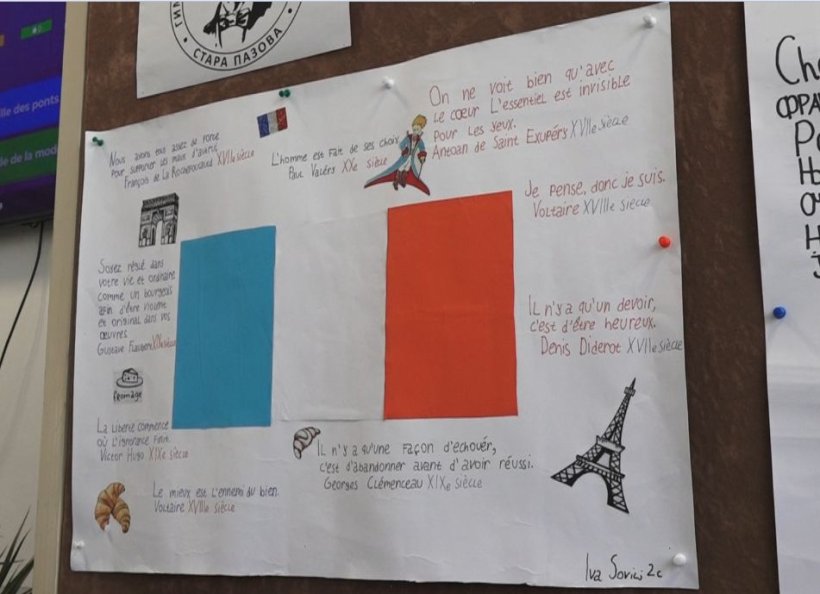 ГИМ
• СТАРА ПАЗОВА •
lle des ponts
le de la mod
Nous avons tous assez de force
pour supporter les maux d'autrui.
François de La Rochefoucauld XVIIe siècle
L'homme est fait de ses choix
Paul Valérs XXe siècle
On ne voit bien qu'avec
le cœur L'essentiel est invisible
pour les yeux.
Antoan de Saint Exupérs XVIIe siècle
Je pense, donc je suis.
Voltaire XVIIIe siècle
Il n'y a qu'un devoir,
c'est d'être heureux.
Denis Diderot XVIIe siècle
Soyez réglé dans
votre vie et ordinaire
comme un bourgeois
afin d'être violent
et original dans vos
œuvres
Gustave Flaubert XIXe siècle
fromage
La liberté commence
où l'ignorance finit.
Victor Hugo XIXe siècle
Le mieux est l'ennemi du bien.
Voltaire XVIIIe siècle
Il n'y a qu'une façon d'échouér,
c'est d'abandonner avant d'avoir réussi.
Georges Clémenceau XIXe siècle
Iva 2c
Che